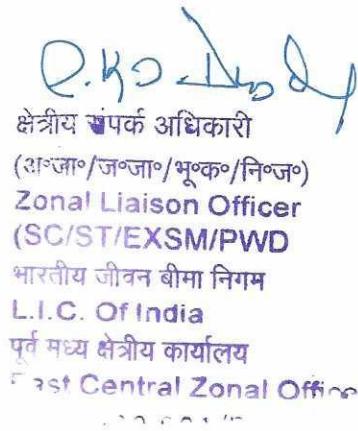 क्षेत्रीय संपर्क अधिकारी
(अ॰जा॰/ज॰जा॰/भू॰क॰/नि॰ज॰)
Zonal Liaison Officer
(SC/ST/EXSM/PWD
भारतीय जीवन बीमा निगम
L.I.C. Of India
पूर्व मध्य क्षेत्रीय कार्यालय
East Central Zonal Office